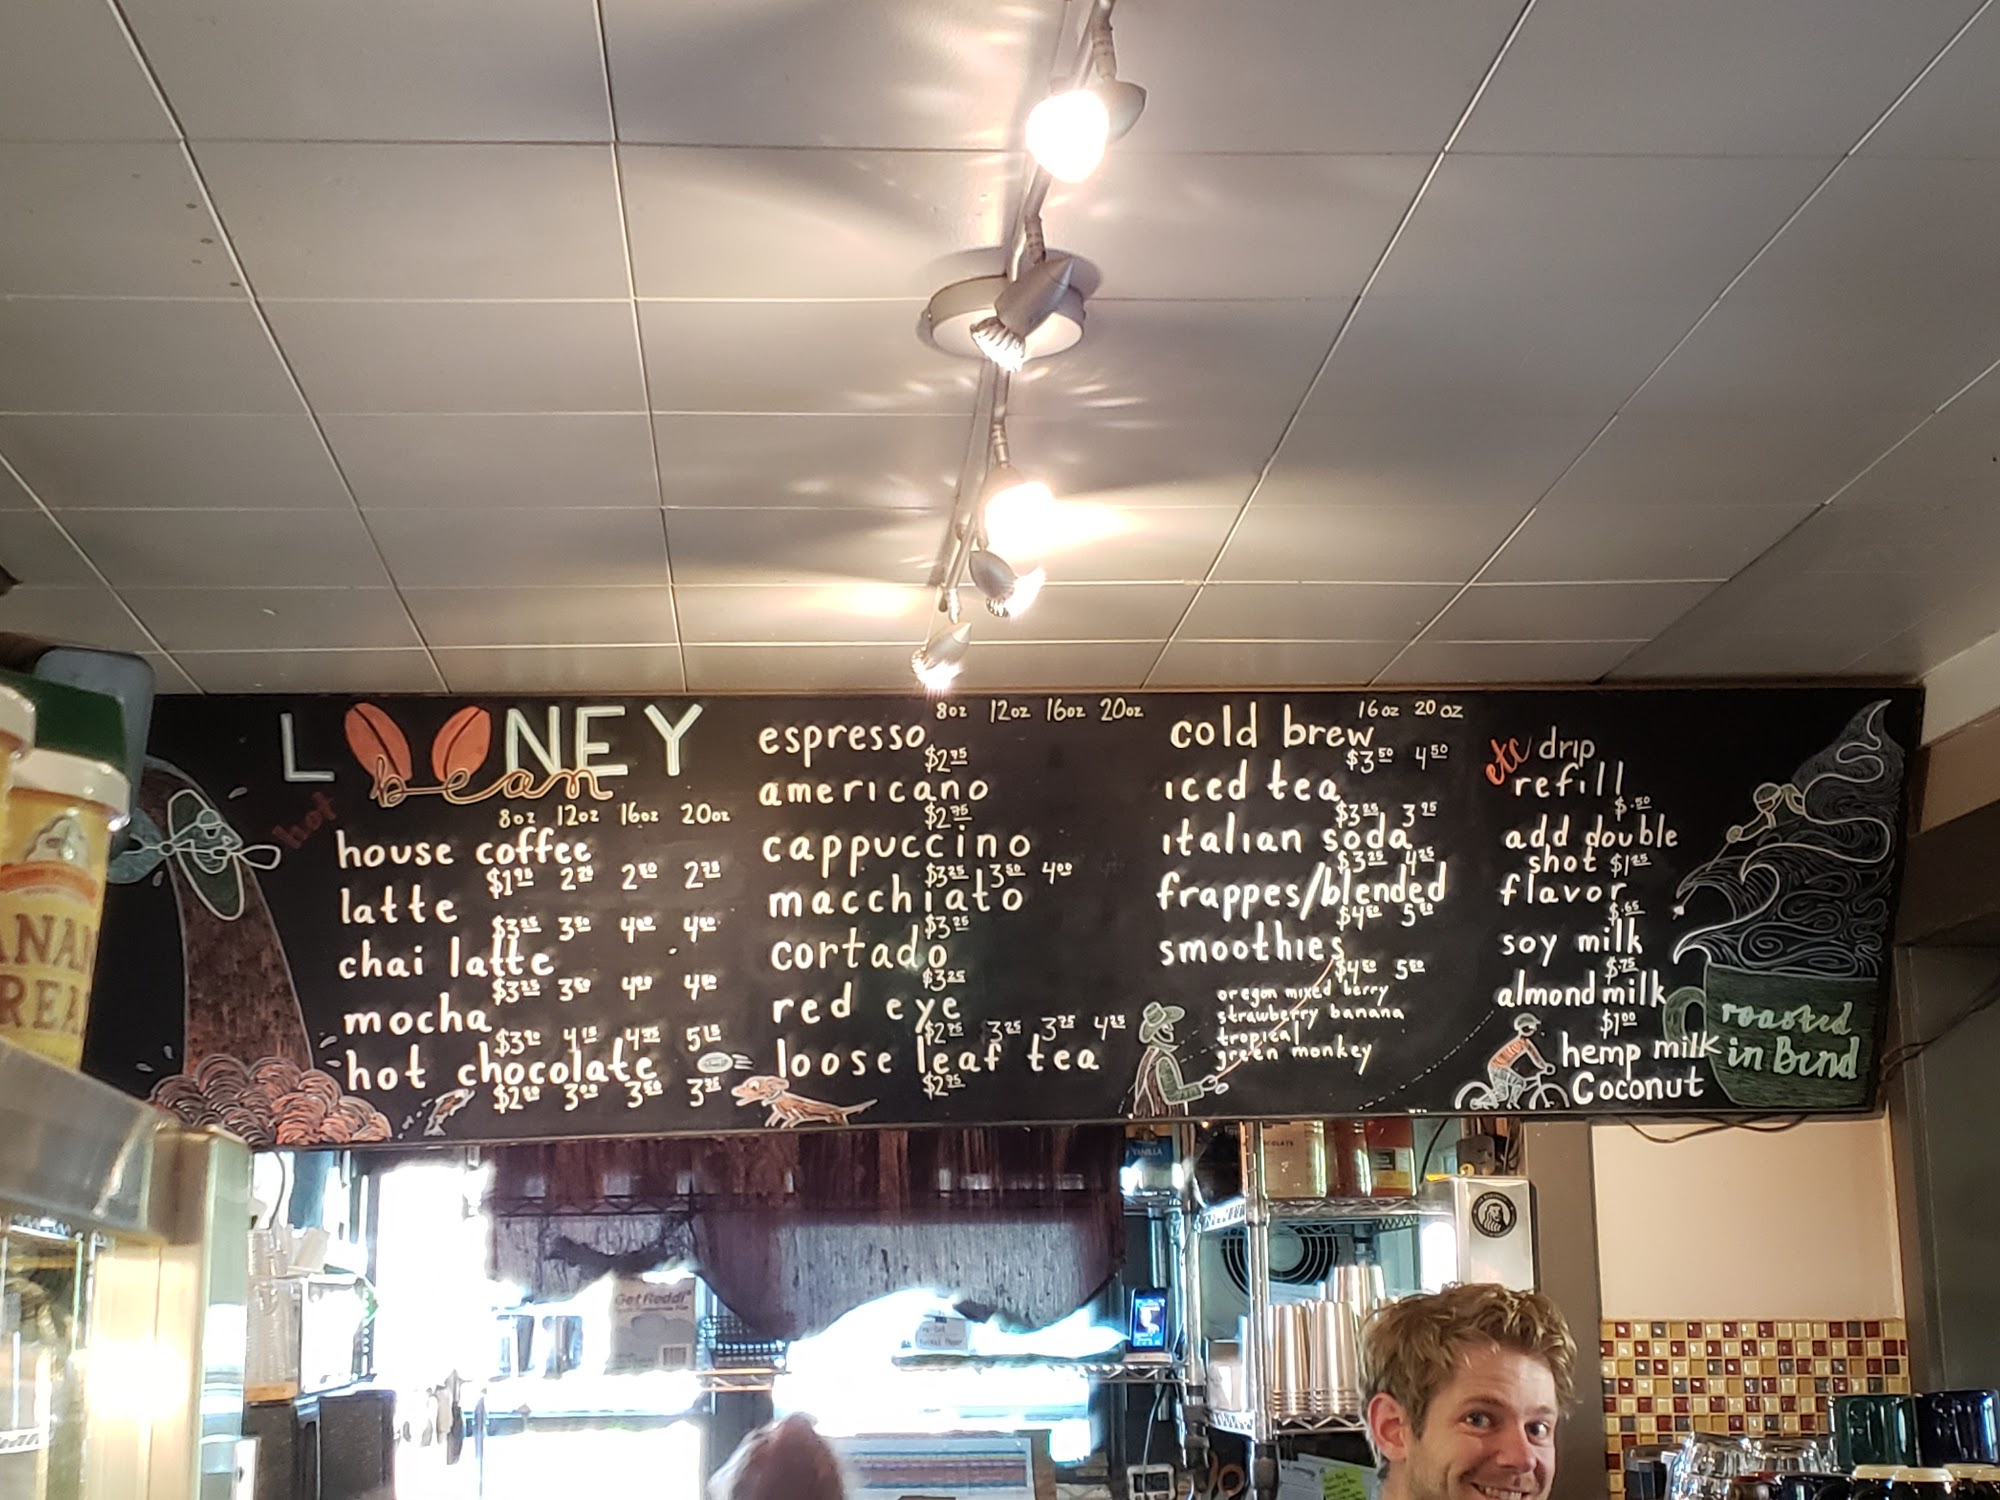 LOONEY
bean
hot
8oz 12oz 16oz 20oz
house coffee
latte
$3²⁵ 3⁵⁰ 4⁰⁰
chai latte
$3²⁵ 3⁵⁰
mocha
hot chocolate
8oz 12oz 16oz 20oz
espresso
$2⁷⁵
americano
$2⁷⁵
cappuccino
$3²⁵ 3⁵⁰ 4⁰⁰
macchiato
$3²⁵
cortado
$3²⁵
red eye
$2⁷⁵ 3²⁵ 3⁷⁵ 4²⁵
loose leaf tea
$2⁷⁵
16oz 20oz
cold brew
$3⁵⁰ 4⁵⁰
iced tea
$3²⁵ 3⁹⁵
italian soda
$3²⁵ 4²⁵
frappes/blended
$4⁵⁰ 5⁵⁰
smoothies
$4⁵⁰ 5⁵⁰
oregon mixed berry
strawberry banana
tropical
green monkey
etc drip
refill
$.50
add double
shot $1²⁵
flavor
$.65
soy milk
$.75
almond milk
$1⁰⁰
hemp milk
Coconut
roasted
in Bend
GetReddi
VANILLA